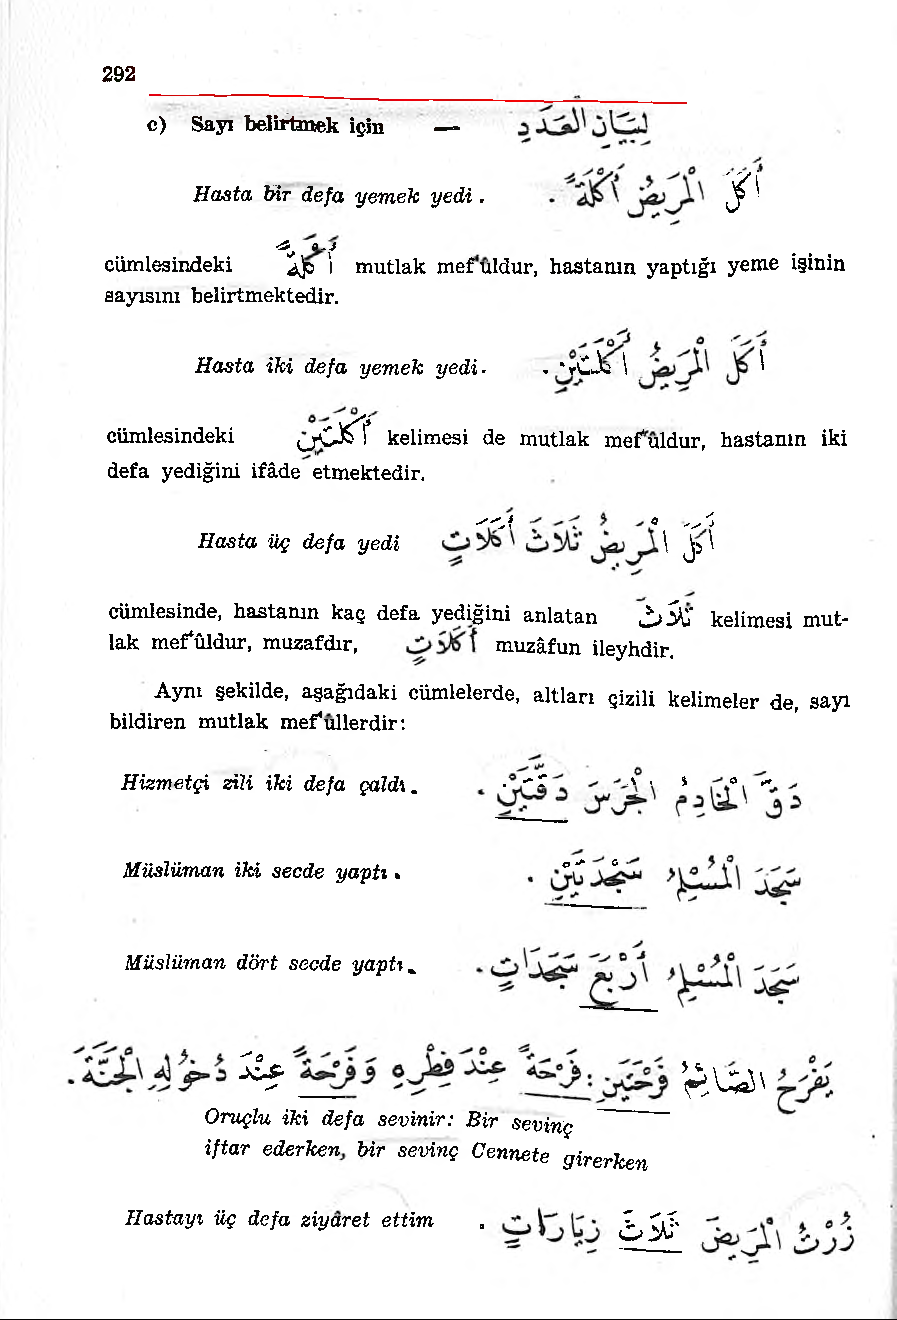 292
c) Sayı belirtmek için — لِبَيَانِ الْعَدَدِ
Hasta bir defa yemek yedi. أَكَلَ الْمَرِيضُ أَكْلَةً .
cümlesindeki أَكْلَةً mutlak mef'ûldur, hastanın yaptığı yeme işinin
sayısını belirtmektedir.
Hasta iki defa yemek yedi. أَكَلَ الْمَرِيضُ أَكْلَتَيْنِ .
cümlesindeki أَكْلَتَيْنِ kelimesi de mutlak mef'ûldur, hastanın iki
defa yediğini ifâde etmektedir.
Hasta üç defa yedi أَكَلَ الْمَرِيضُ ثَلَاثَ أَكَلَاتٍ
cümlesinde, hastanın kaç defa yediğini anlatan ثَلَاثَ kelimesi mut-
lak mef'ûldur, muzafdır, أَكَلَاتٍ muzâfun ileyhdir.
Aynı şekilde, aşağıdaki cümlelerde, altları çizili kelimeler de, sayı
bildiren mutlak mef'ûllerdir:
Hizmetçi zili iki defa çaldı. دَقَّ الْخَادِمُ الْجَرَسَ دَقَّتَيْنِ .
Müslüman iki secde yaptı. سَجَدَ الْمُسْلِمُ سَجْدَتَيْنِ .
Müslüman dört secde yaptı. سَجَدَ الْمُسْلِمُ أَرْبَعَ سَجَدَاتٍ .
يَفْرَحُ الصَّائِمُ فَرْحَتَيْنِ : فَرْحَةً عِنْدَ فِطْرِهِ وَفَرْحَةً عِنْدَ دُخُولِهِ الْجَنَّةَ .
Oruçlu iki defa sevinir: Bir sevinç
iftar ederken, bir sevinç Cennete girerken
Hastayı üç defa ziyâret ettim زُرْتُ الْمَرِيضَ ثَلَاثَ زِيَارَاتٍ .